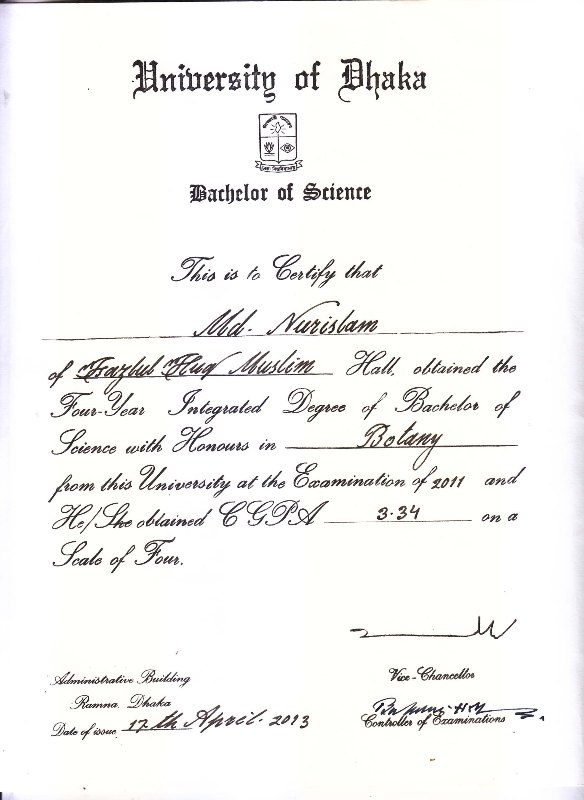 University of Dhaka
Bachelor of Science
This is to Certify that
Md. Nurislam
of Fazlul Huq Muslim Hall, obtained the
Four-Year Integrated Degree of Bachelor of
Science with Honours in Botany
from this University at the Examination of 2011 and
He/She obtained CGPA 3.34 on a
Scale of Four.
Administrative Building
Ramna, Dhaka
Date of issue 17th April. 2013
Vice-Chancellor
Controller of Examinations